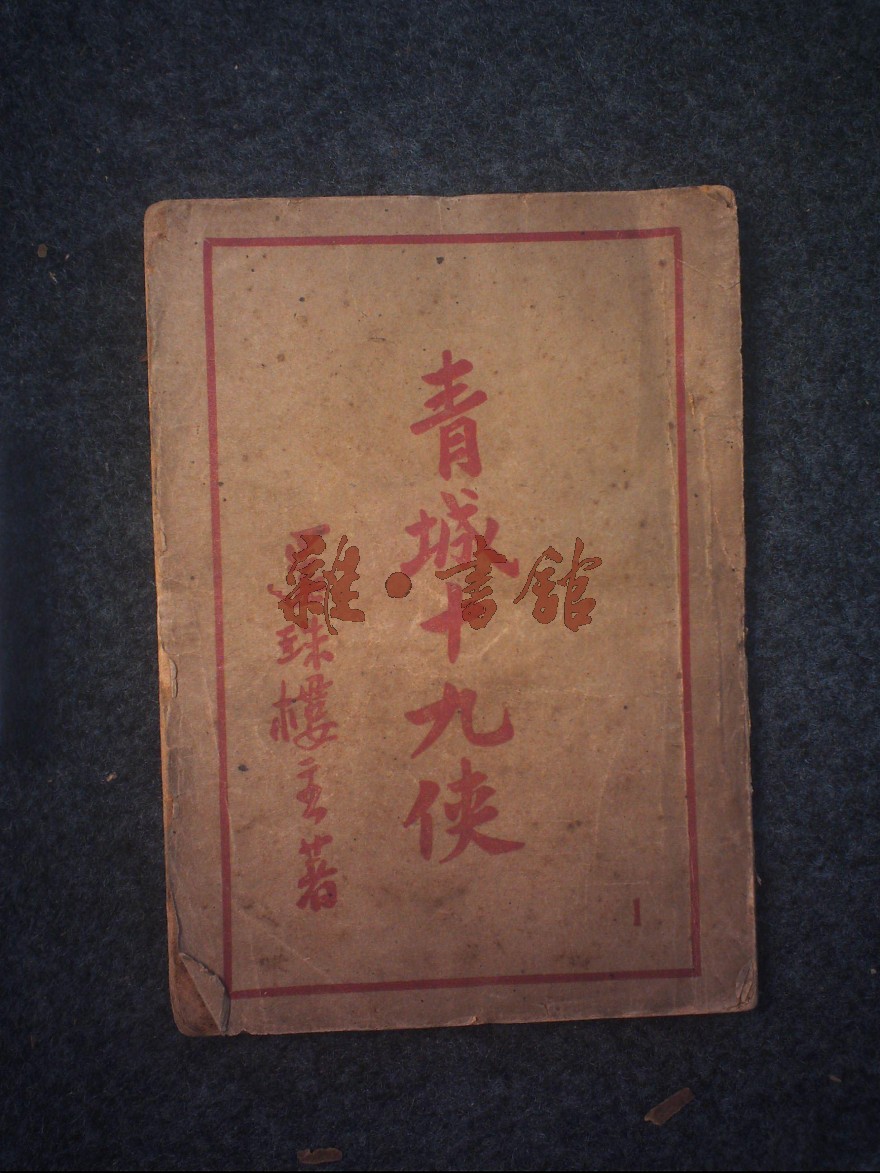 青城十九俠
還珠樓主著
1
雜·書館